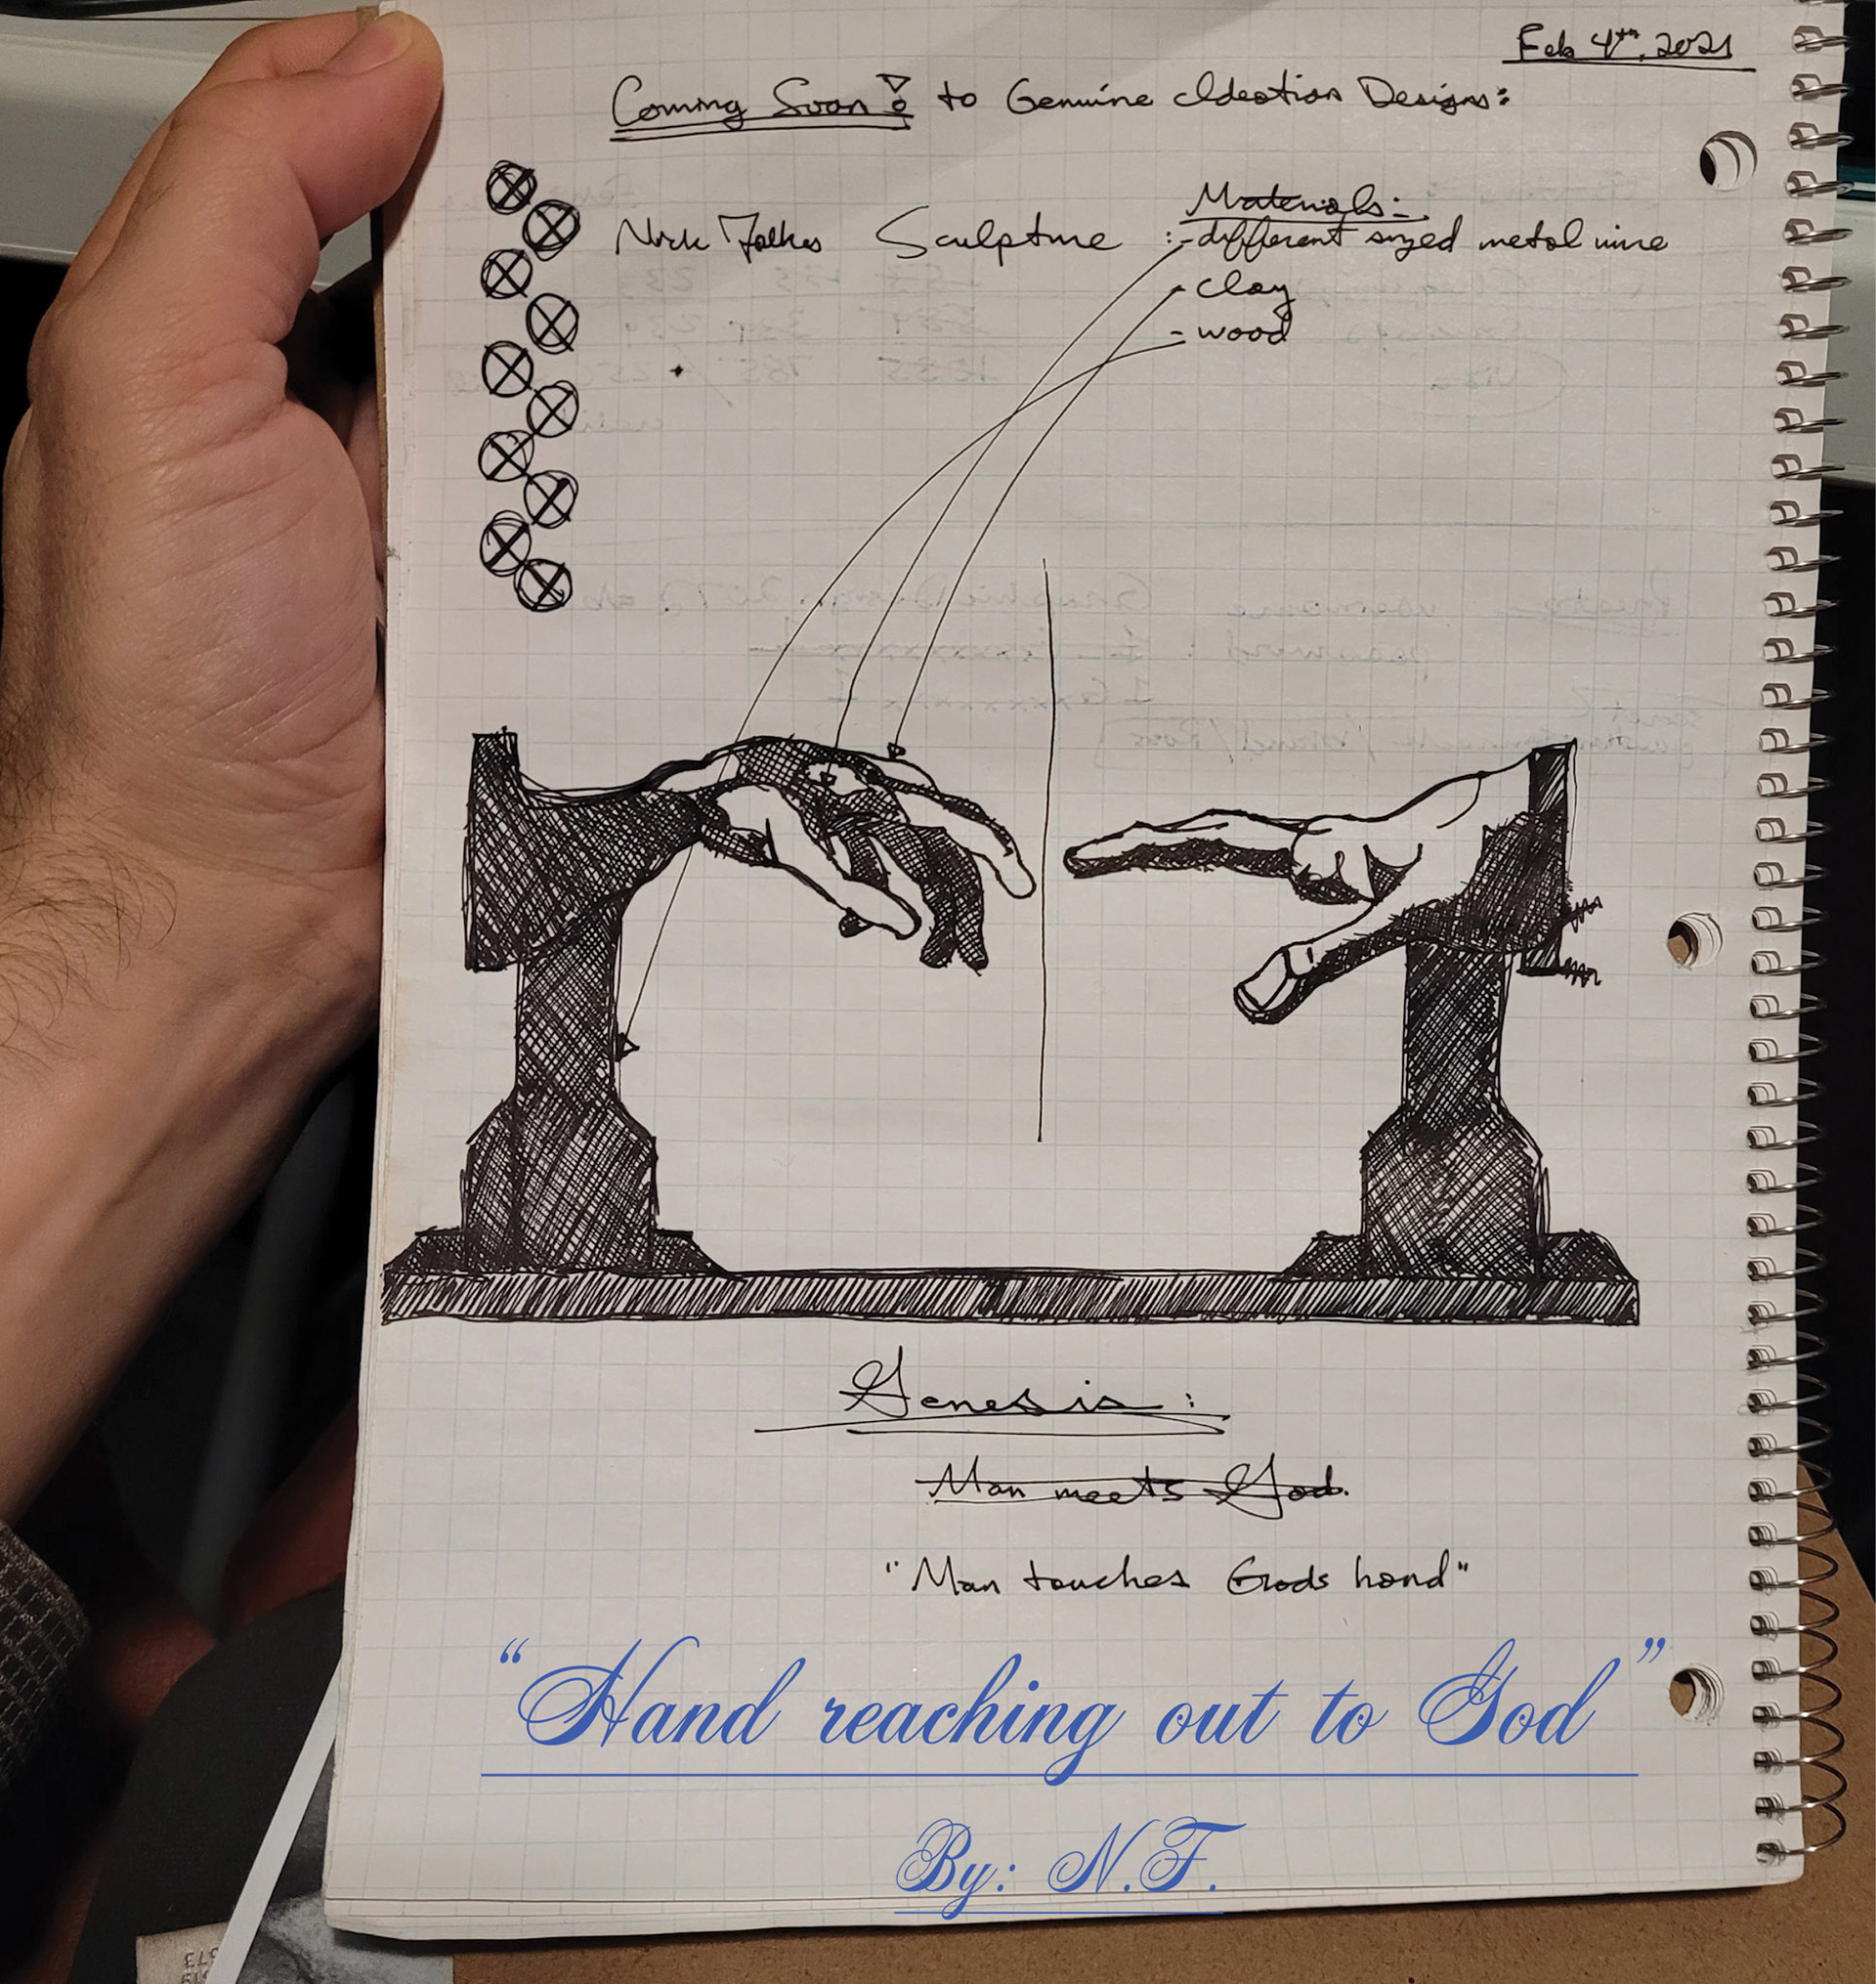 Feb 4th, 2021
Coming Soon! to Genuine Ideation Designs:
Materials:
Nick Sculpture :- different sized metal wire
- clay
- wood
Genesis:
Man meets God.
"Man touches Gods hand"
“Hand reaching out to God”
By: N.F.